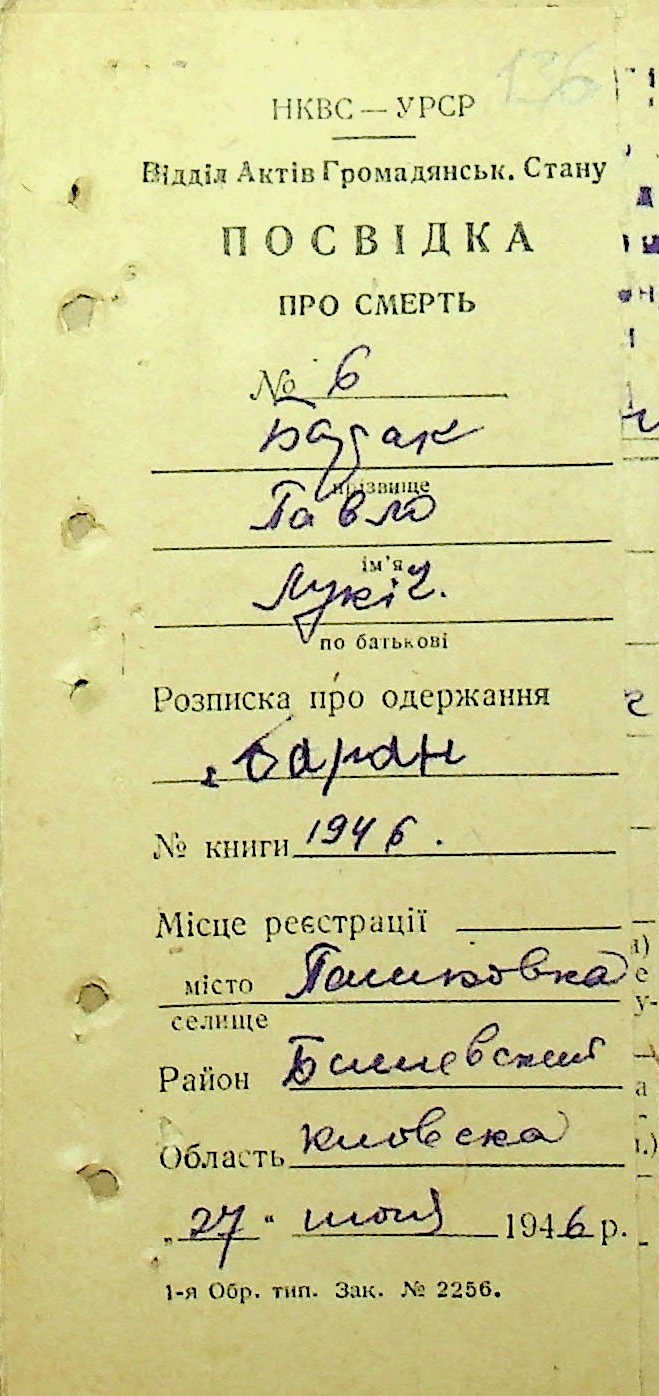 136
НКВС — УРСР
Відділ Актів Громадянськ. Стану
ПОСВІДКА
ПРО СМЕРТЬ
№ 6
прізвище
Павло
ім'я
Лукіч.
по батькові
Розписка про одержання
Баран
№ книги 1946.
Місце реєстрації
місто Пашковка
селище
Район Бишевский
Область Киовска
„27“ июня 1946 р.
1-я Обр. тип. Зак. № 2256.